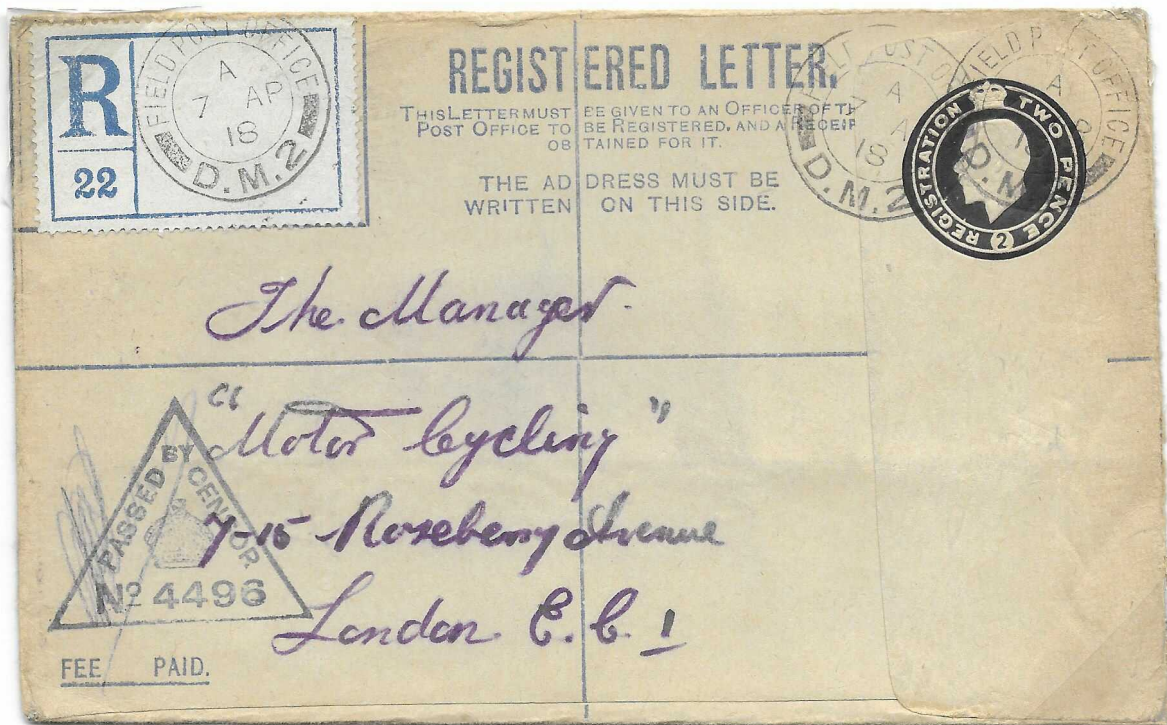 R
22
FIELD POST OFFICE
A
7 AP
18
D.M.2
REGISTERED LETTER.
THIS LETTER MUST BE GIVEN TO AN OFFICER OF TH
POST OFFICE TO BE REGISTERED, AND A RECEIP
OBTAINED FOR IT.
THE ADDRESS MUST BE
WRITTEN ON THIS SIDE.
FIELD POST OFFICE
A
18
D.M.2
FIELD POST OFFICE
A
18
D.M.
REGISTRATION TWO PENCE
2
The Manager.
"Motor Cycling"
7-15 Rosebery Avenue
London E.C.1
PASSED BY CENSOR
No 4496
FEE PAID.